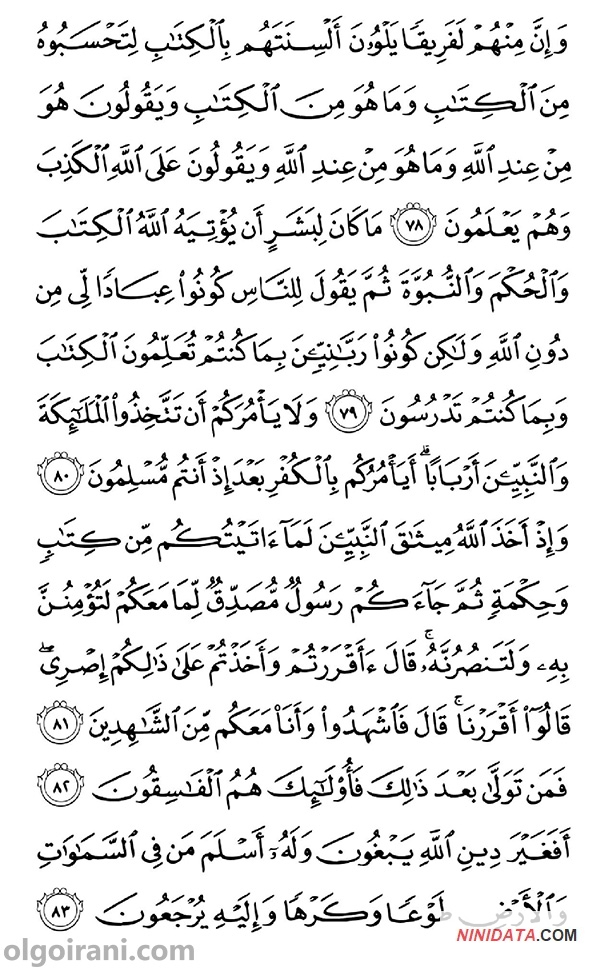 وَإِنَّ مِنْهُمْ لَفَرِيقًا يَلْوُۥنَ أَلْسِنَتَهُم بِٱلْكِتَٰبِ لِتَحْسَبُوهُ
مِنَ ٱلْكِتَٰبِ وَمَا هُوَ مِنَ ٱلْكِتَٰبِ وَيَقُولُونَ هُوَ
مِنْ عِندِ ٱللَّهِ وَمَا هُوَ مِنْ عِندِ ٱللَّهِ وَيَقُولُونَ عَلَى ٱللَّهِ ٱلْكَذِبَ
وَهُمْ يَعْلَمُونَ ٧٨ مَا كَانَ لِبَشَرٍ أَن يُؤْتِيَهُ ٱللَّهُ ٱلْكِتَٰبَ
وَٱلْحُكْمَ وَٱلنُّبُوَّةَ ثُمَّ يَقُولَ لِلنَّاسِ كُونُوا۟ عِبَادًا لِّى مِن
دُونِ ٱللَّهِ وَلَٰكِن كُونُوا۟ رَبَّٰنِيِّۦنَ بِمَا كُنتُمْ تُعَلِّمُونَ ٱلْكِتَٰبَ
وَبِمَا كُنتُمْ تَدْرُسُونَ ٧٩ وَلَا يَأْمُرَكُمْ أَن تَتَّخِذُوا۟ ٱلْمَلَٰٓئِكَةَ
وَٱلنَّبِيِّۦنَ أَرْبَابًا ۗ أَيَأْمُرُكُم بِٱلْكُفْرِ بَعْدَ إِذْ أَنتُم مُّسْلِمُونَ ٨٠
وَإِذْ أَخَذَ ٱللَّهُ مِيثَٰقَ ٱلنَّبِيِّۦنَ لَمَآ ءَاتَيْتُكُم مِّن كِتَٰبٍ
وَحِكْمَةٍ ثُمَّ جَآءَكُمْ رَسُولٌ مُّصَدِّقٌ لِّمَا مَعَكُمْ لَتُؤْمِنُنَّ
بِهِۦ وَلَتَنصُرُنَّهُۥ ۚ قَالَ ءَأَقْرَرْتُمْ وَأَخَذْتُمْ عَلَىٰ ذَٰلِكُمْ إِصْرِى ۖ
قَالُوٓا۟ أَقْرَرْنَا ۚ قَالَ فَٱشْهَدُوا۟ وَأَنَا۠ مَعَكُم مِّنَ ٱلشَّٰهِدِينَ ٨١
فَمَن تَوَلَّىٰ بَعْدَ ذَٰلِكَ فَأُو۟لَٰٓئِكَ هُمُ ٱلْفَٰسِقُونَ ٨٢
أَفَغَيْرَ دِينِ ٱللَّهِ يَبْغُونَ وَلَهُۥٓ أَسْلَمَ مَن فِى ٱلسَّمَٰوَٰتِ
وَٱلْأَرْضِ طَوْعًا وَكَرْهًا وَإِلَيْهِ يُرْجَعُونَ ٨٣
NINIDATA.COM
olgoirani.com